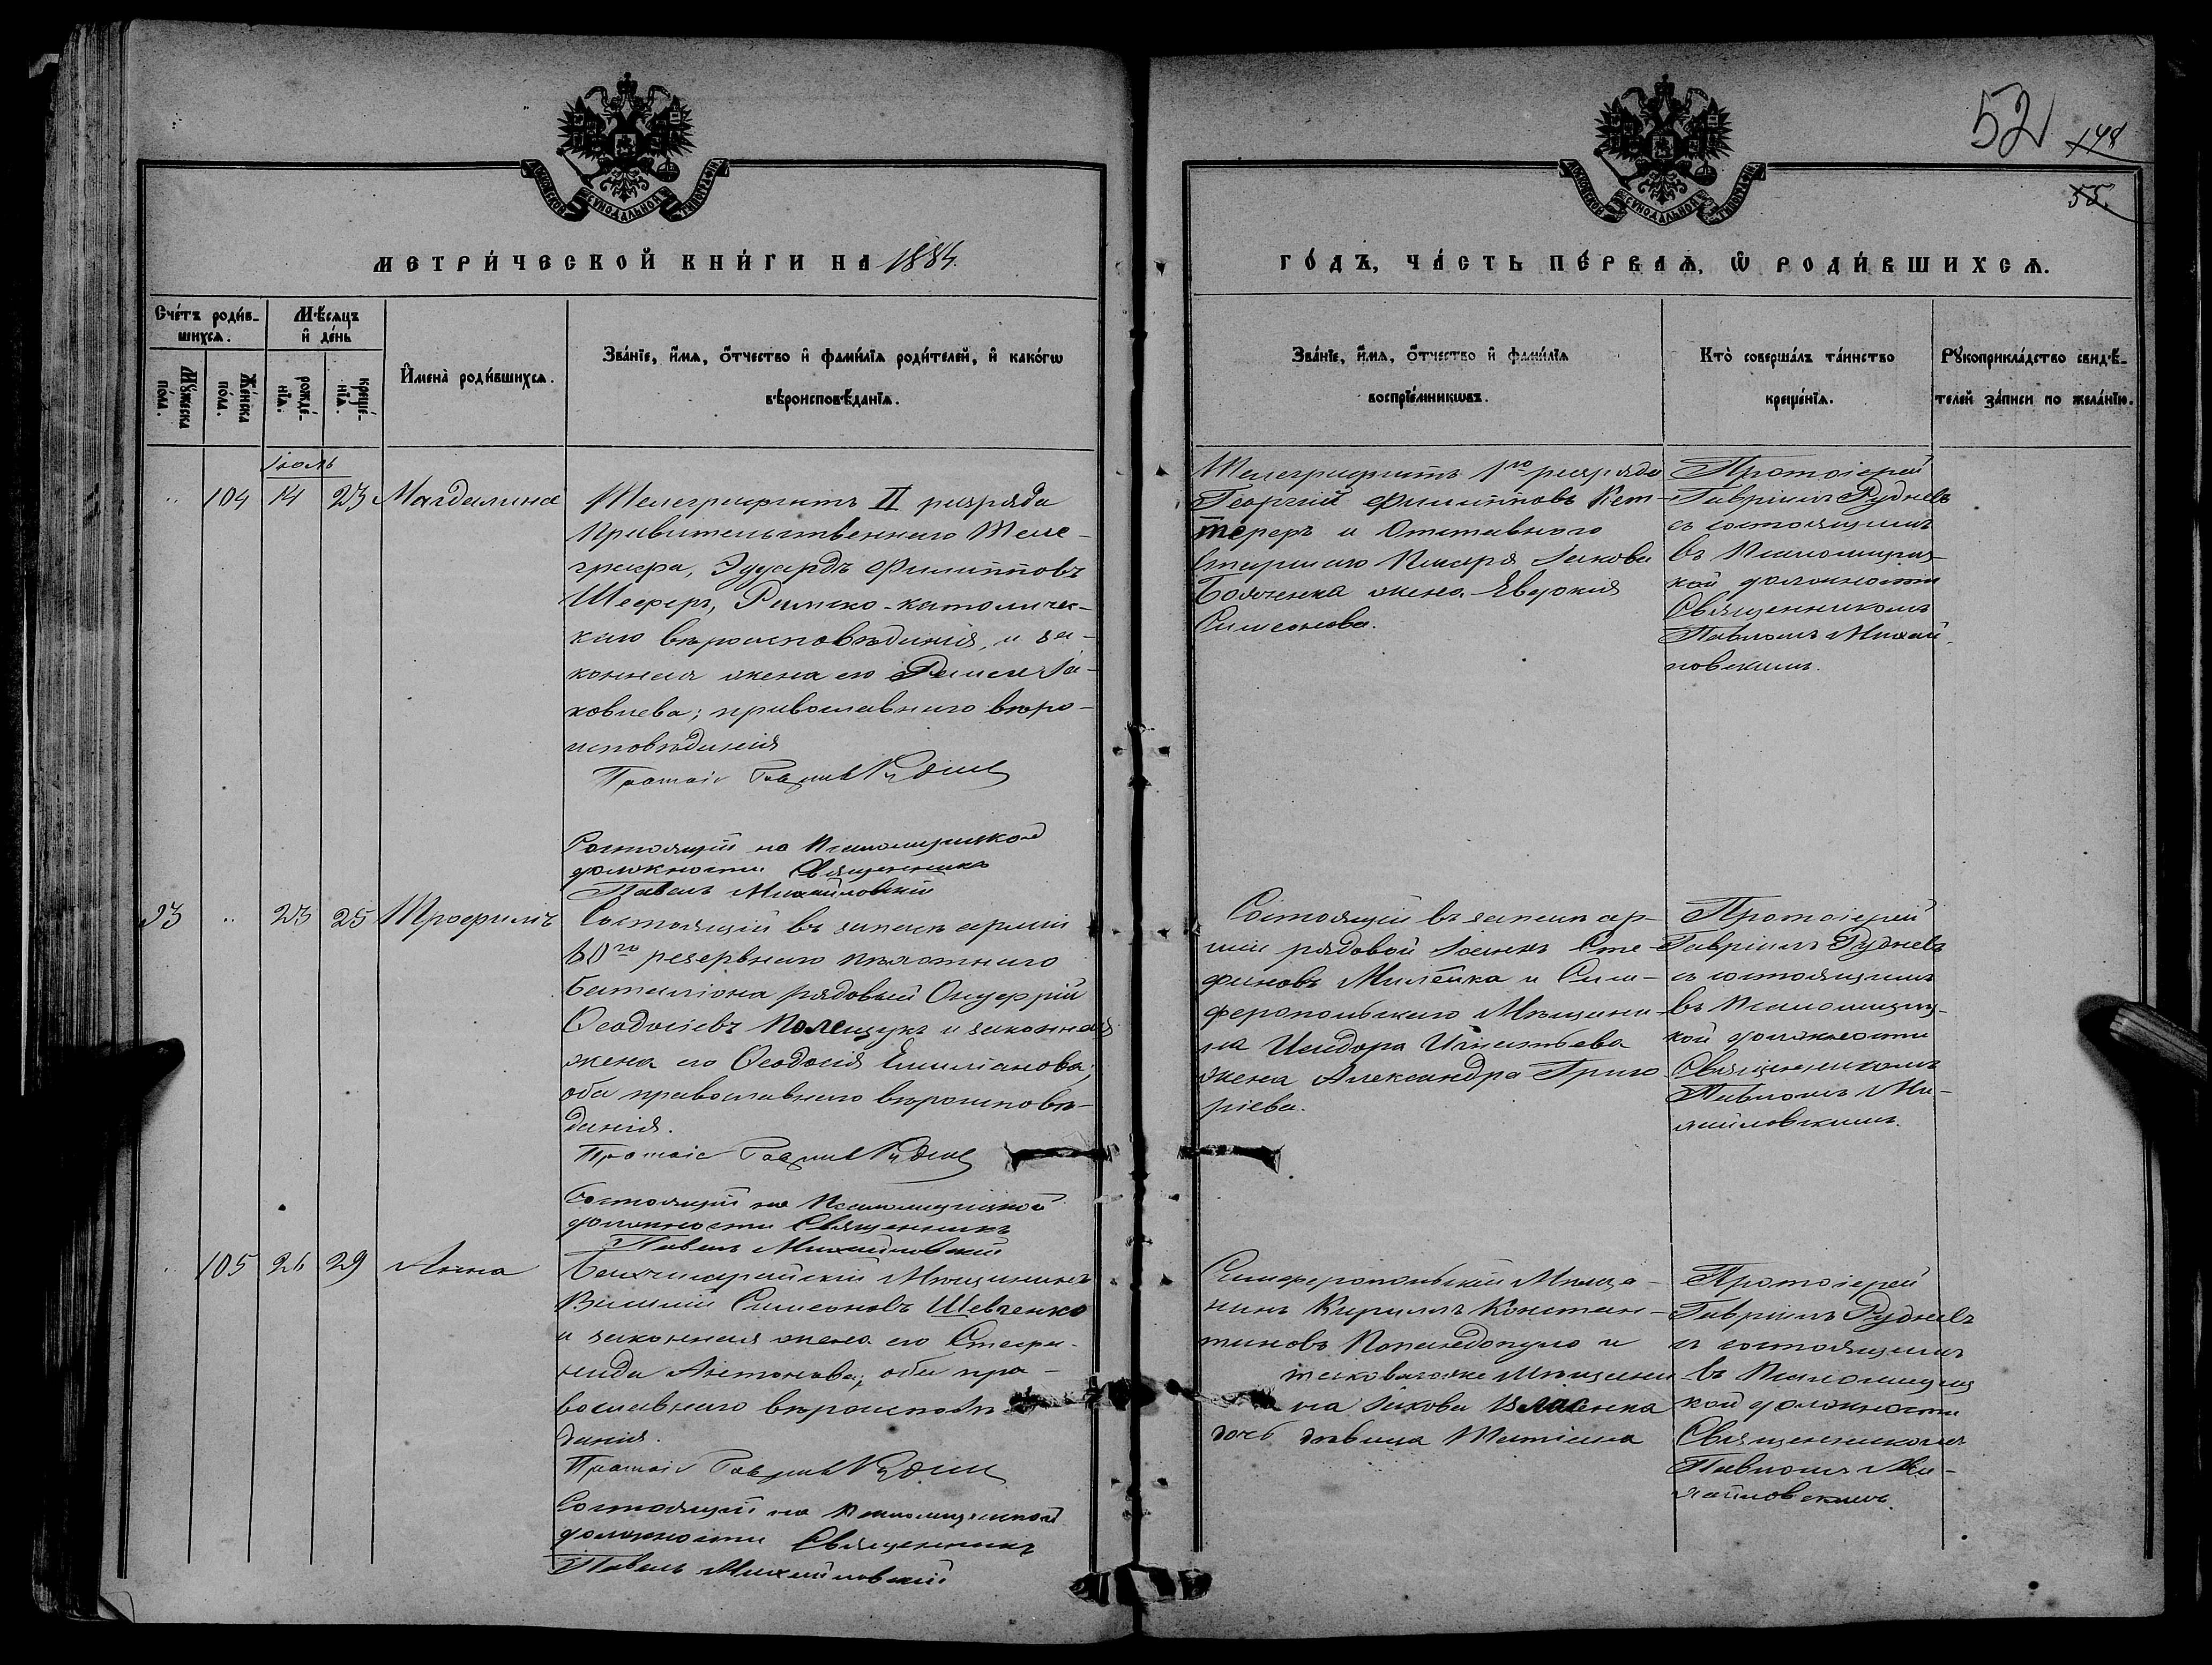 52
148
55.
МОСКОВСКОЙ СѴНОДАЛЬНОЙ ТИПОГРАФІИ
МОСКОВСКОЙ СѴНОДАЛЬНОЙ ТИПОГРАФІИ
МЕТРИ́ЧЕСКОЙ КНИ́ГИ НА 1884.
ГО́ДЪ, ЧА́СТЬ ПЕ́РВАѦ, Ѡ҆ РОДИ́ВШИХСѦ.
Сче́тъ роди́в-
шихсѧ.
Мꙋ́жеска по́ла.
Же́нска по́ла.
Мѣ́сѧцъ
и҆ де́нь
рожде́-
нїѧ.
креще́-
нїѧ.
И҆мена̀ роди́вшихсѧ.
Зва́нїе, и҆́мѧ, ѻ҆́тчество и҆ фами́лїѧ роди́телей, и҆ како́гѡ
вѣроисповѣ́данїѧ.
Зва́нїе, и҆́мѧ, ѻ҆́тчество и҆ фами́лїѧ
воспрїе́мникѡвъ.
Кто̀ соверша́лъ та́инство
креще́нїѧ.
Рꙋкоприкла́дство свидѣ́-
телей за́писи по жела́нїю.
Іюль
104 14 23 Магдалина
Телеграфистъ II разряда
Правительственнаго Теле-
графа, Эдуардъ Филипповъ
Шеферъ, Римско-католичес-
каго вѣроисповѣданія, и за-
конная жена его Іа-
ковлева; православнаго вѣро-
исповѣданія
Протоіе Гавріилъ Рудневъ
Состоящій на Псаломщицкой
должности Священникъ
Павелъ Михайловскій
Телеграфистъ 1го разряда
Георгій Филипповъ Кет-
тереръ и Отставного
Старшаго Писаря Іакова
жена Евдокія
Симеонова.
Протоіерей
Гавріилъ Рудневъ
съ состоящимъ
въ Псаломщиц-
кой должности
Священникомъ
Павломъ Михай-
ловскимъ.
93 23 25 Трофимъ
Состоящій въ запасѣ арміи
60го резервнаго пѣхотнаго
баталіона рядовый Онуфрій
Ѳеодосіевъ Полещукъ и законная
жена его Ѳеодосія Емиліанова;
оба православнаго вѣроисповѣ-
данія.
Протоіе Гавріилъ Рудневъ
Состоящій на Псаломщицкой
должности Священникъ
Павелъ Михайловскій
Состоящій въ запасѣ ар-
міи рядовой Іоаннъ Сте-
фановъ Милейка и Сим-
феропольскаго Мѣщани-
на Исидора Игнатьева
жена Александра Григо-
ріева.
Протоіерей
Гавріилъ Рудневъ
съ состоящимъ
въ Псаломщиц-
кой должности
Священникомъ
Павломъ Ми-
хайловскимъ.
105 26 29 Анна
Бахчисарайскій Мѣщанинъ
Василій Симеоновъ Шевченко
и законная жена его Стефа-
нида Антонова; оба пра-
вославнаго вѣроисповѣ-
данія.
Протоіе Гавріилъ Рудневъ
Состоящій на Псаломщицкой
должности Священникъ
Павелъ Михайловскій
Симферопольскій Мѣща-
нинъ Кириллъ Констан-
тиновъ Попандопуло и
таковагоже Мѣщани
на Іакова Власенка
дочь дѣвица Татіана
Протоіерей
Гавріилъ Рудневъ
съ состоящимъ
въ Псаломщиц
кой должности
Священникомъ
Павломъ Ми-
хайловскимъ.